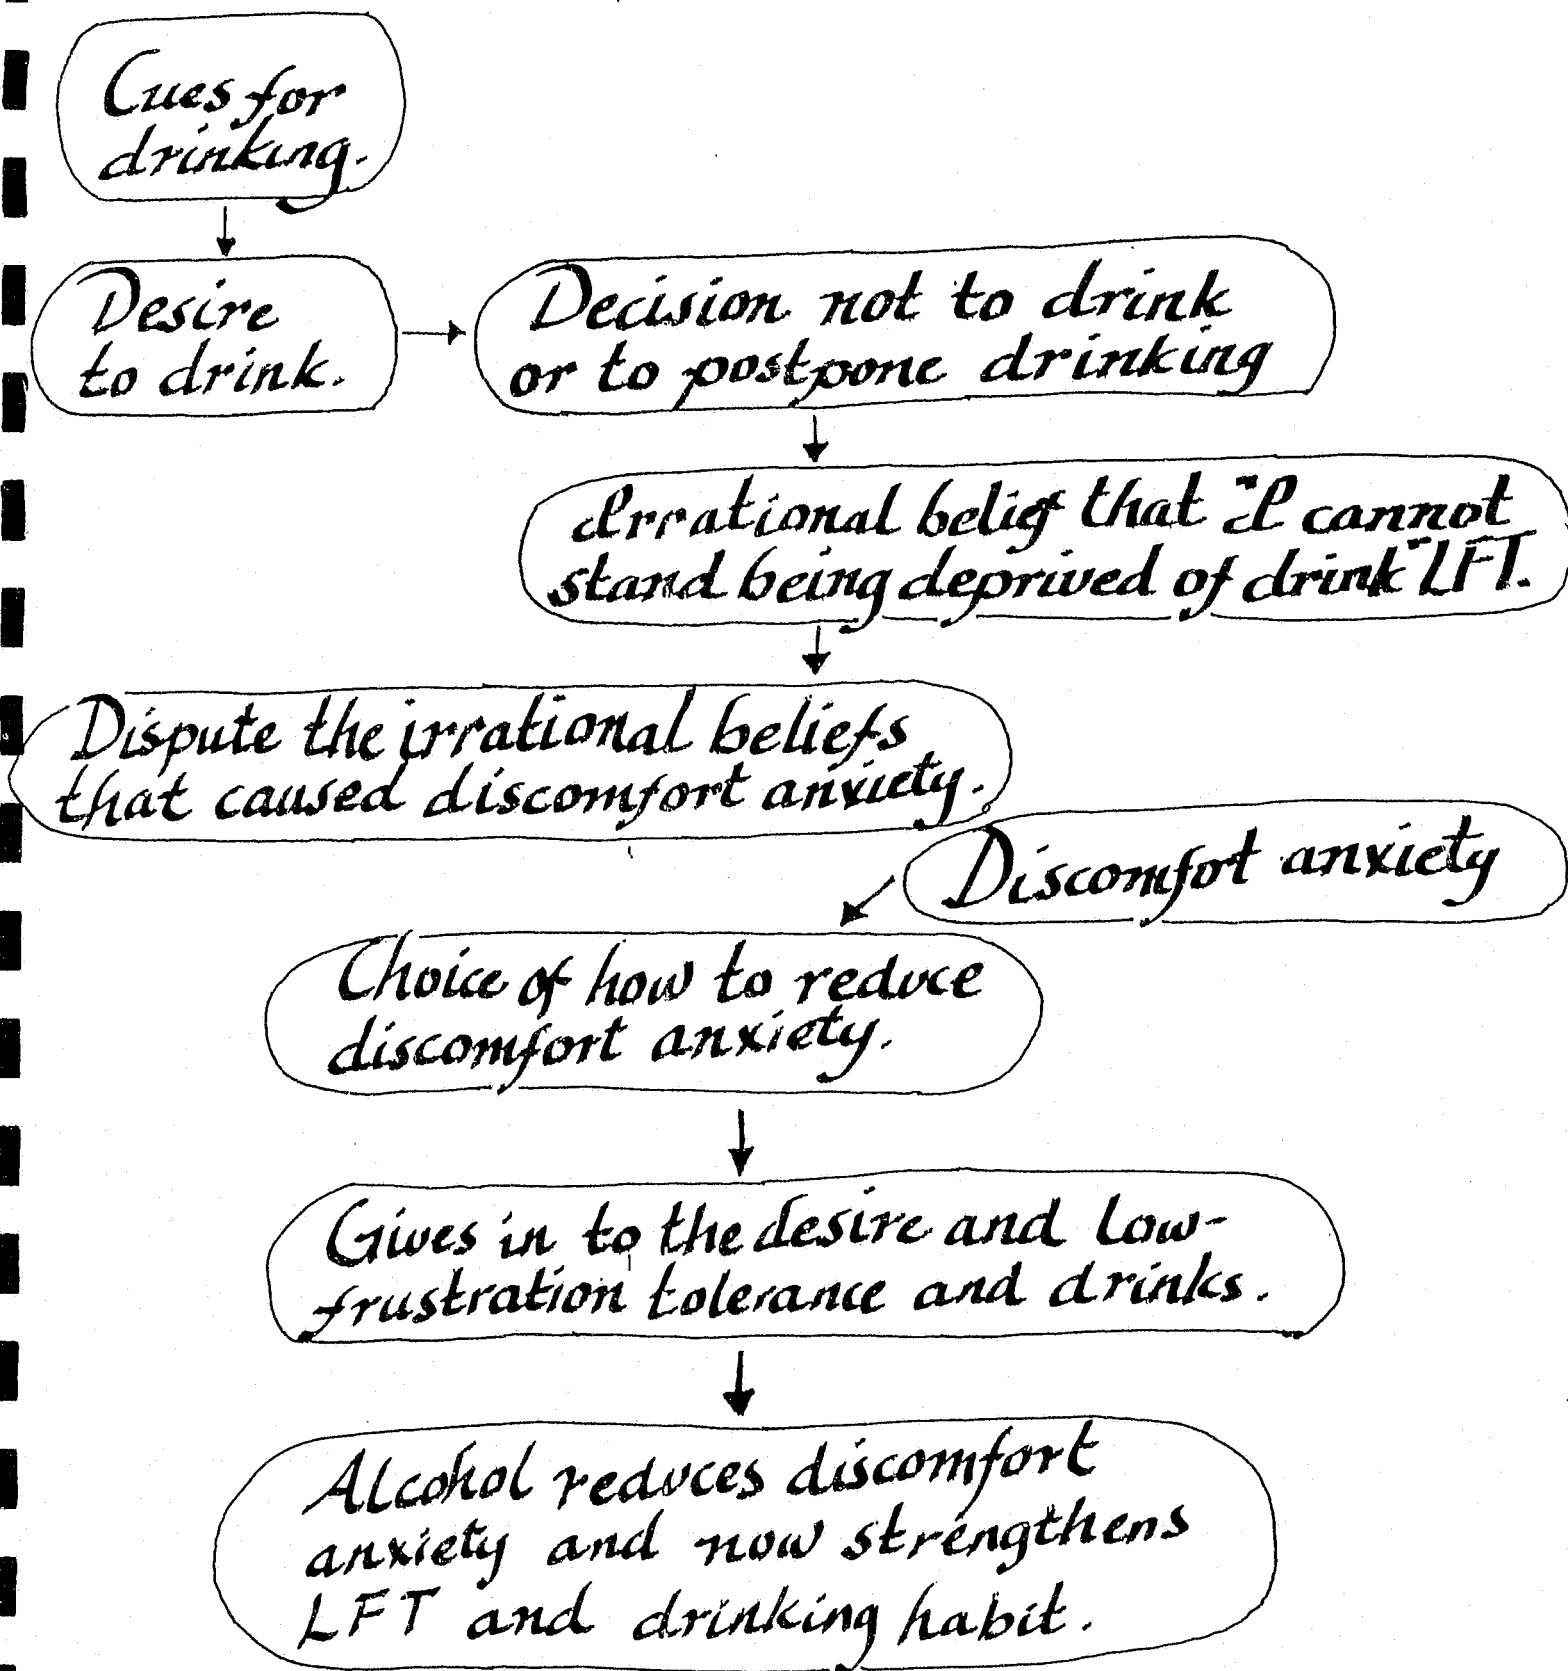 Cues for
drinking.
Desire
to drink.
Decision not to drink
or to postpone drinking
Irrational belief that "I cannot
stand being deprived of drink" LFT.
Dispute the irrational beliefs
that caused discomfort anxiety.
Discomfot anxiety
Choice of how to reduce
discomfort anxiety.
Gives in to the desire and low-
frustration tolerance and drinks.
Alcohol reduces discomfort
anxiety and now strengthens
LFT and drinking habit.